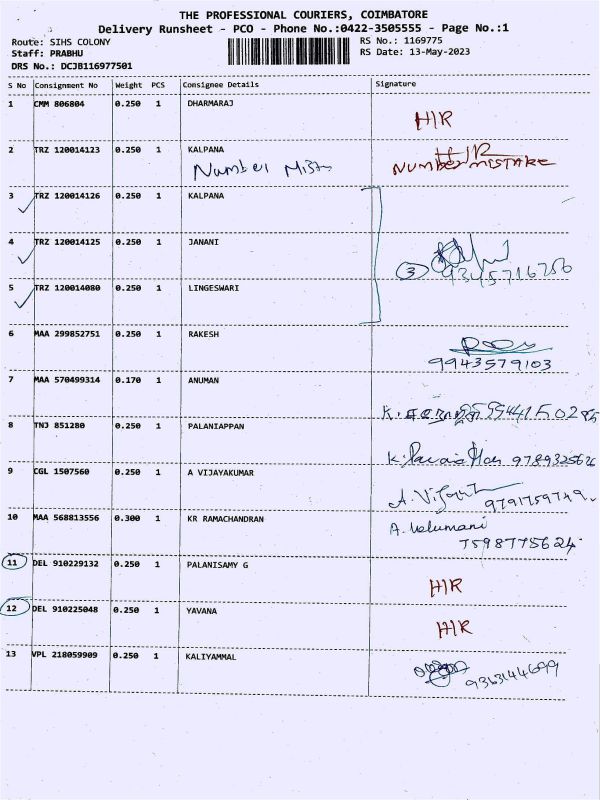 THE PROFESSIONAL COURIERS, COIMBATORE
Delivery Runsheet - PCO - Phone No.:0422-3505555 - Page No.:1
Route: SIHS COLONY RS No.: 1169775
Staff: PRABHU RS Date: 13-May-2023
DRS No.: DCJB116977501
S No Consignment No Weight PCS Consignee Details Signature
1 CMM 806804 0.250 1 DHARMARAJ
H/R
2 TRZ 120014123 0.250 1 KALPANA H/R
Number Mist NUMBER MISTAKE
3 TRZ 120014126 0.250 1 KALPANA
4 TRZ 120014125 0.250 1 JANANI
3 9345716756
5 TRZ 120014080 0.250 1 LINGESWARI
6 MAA 299852751 0.250 1 RAKESH
9943579103
7 MAA 570499314 0.170 1 ANUMAN
K.
8 TNJ 851280 0.250 1 PALANIAPPAN
9789325626
9 CGL 1507560 0.250 1 A VIJAYAKUMAR
A. 9791759749
10 MAA 568813556 0.300 1 KR RAMACHANDRAN A. Velumani
7598775624
11 DEL 910229132 0.250 1 PALANISAMY G
H/R
12 DEL 910225048 0.250 1 YAVANA
H/R
13 VPL 218059909 0.250 1 KALIYAMMAL
9363144699